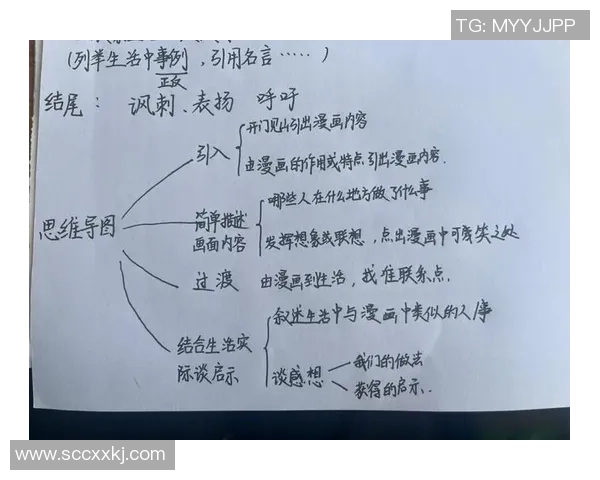 TG: MYYJJPP
(列举生活中事例，引用名言……)
正反
结尾：讽刺、表扬 呼吁
思维导图
引入
开门见山引出漫画内容
由漫画的作用或特点引出漫画内容.
简单描述
画面内容
哪些人在什么地方做了什么事
发挥想象或联想，点出漫画中可笑之处
过渡
由漫画到生活，找准联系点.
结合生活实
际谈启示
叙述生活中与漫画中类似的人事
谈感想
我们的做法
获得的启示.
www.sccxxkj.com